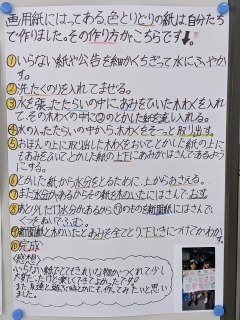 画用紙にはってある色とりどりの紙は自分たち
で作りました。その作り方がこちらです↓。
①いらない紙や公告を細かくちぎって水にふやか
す。
②洗たくのりを入れてまぜる。
③水を張ったたらいの中にあみをひいた木わくを入れ
て、その木わくの中に②のとかした紙を流し入れる。
④水の入ったたらいの中から、木わくをそーっと取り出す。
⑤おぼんの上に取りだした木わくをおいてとかした紙の上に
もあみをひいてとかした紙の上下にあみがはさんであるように
する。
⑥とかした紙から水分をとるために、上からおさえる。
⑦まだ水分があるからその紙を木のいたにはさんで、おす。
⑧あと少しだけ水分があるから⑦のものを新聞紙にはさんで、
くつをぬいで、ふむ。
⑨新聞紙と木のいたとあみを全てとり下じきにつけてかわか
す。
⑩完成
(感想)
いらない紙でてきれいな物がつくれて少し
大変だったけど楽しくできてよかったです!
また友達と遊ぶ時とかにも、作ってみたいと思い
ました。